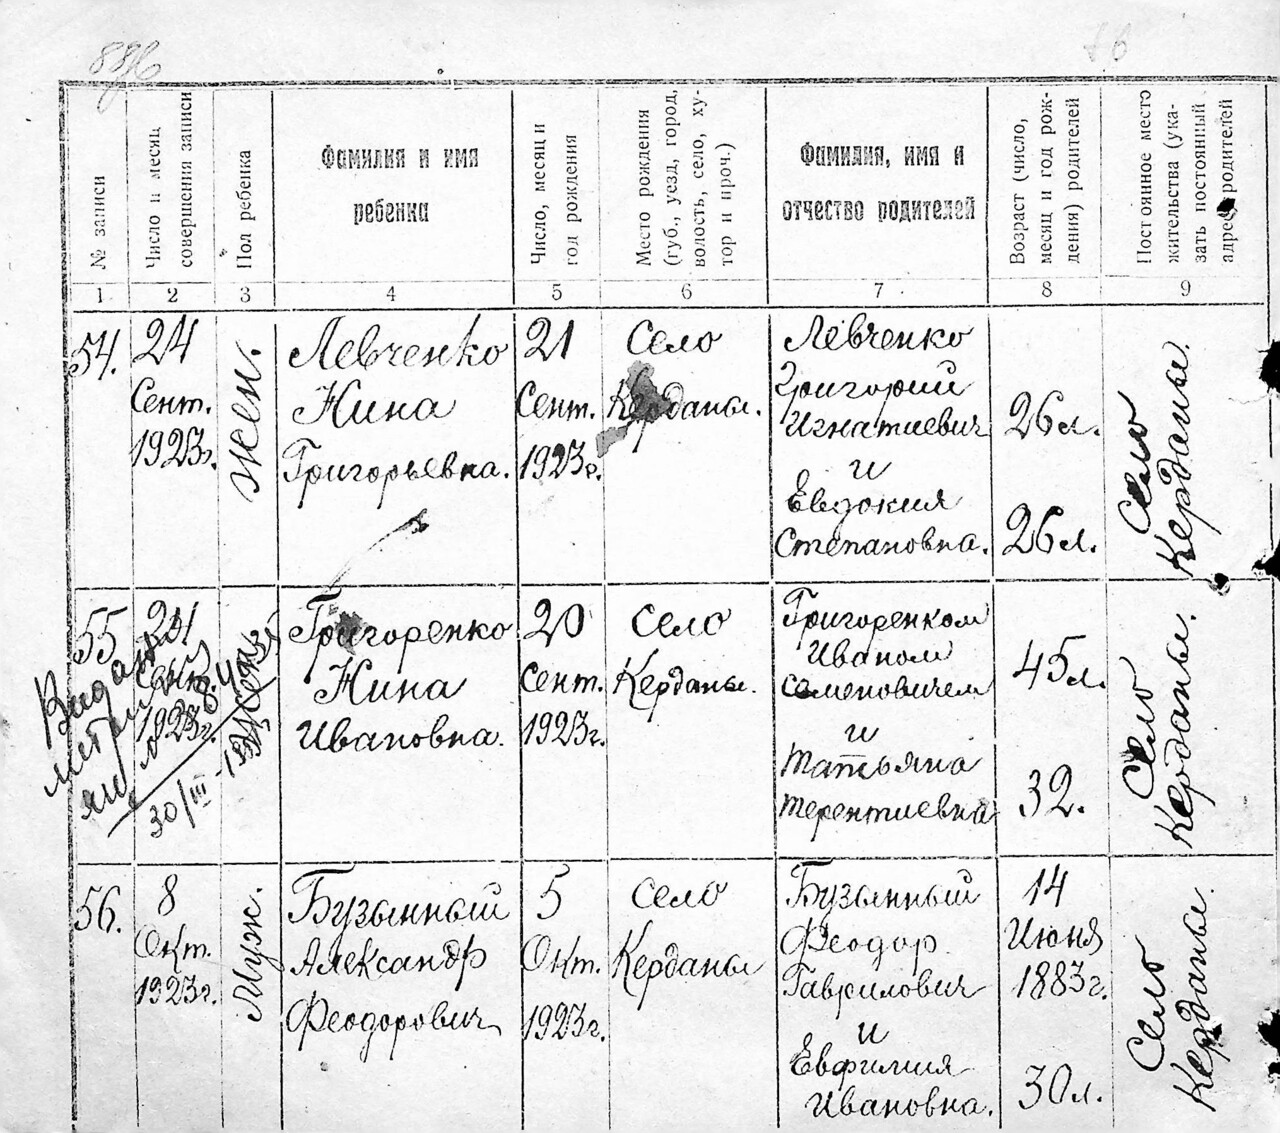 886
№ записи
Число и месяц
совершения записи
Пол ребенка
Фамилия и имя
ребенка
Число, месяц и
год рождения
Место рождения
(губ., уезд, город,
волость, село, ху-
тор и проч.)
Фамилия, имя и
отчество родителей
Возраст (число,
месяц и год рож-
дения) родителей
Постоянное место
жительства (ука-
зать постоянный
адрес родителей
1 2 3 4 5 6 7 8 9
54.
24
Сент.
1923г.
Жен.
Левченко
Нина
Григорьевна.
21
Сент.
1923г.
Село
Керданы.
Левченко
Григорий
Игнатиевич
и
Евдокия
Степановна.
26л.
26л.
Село
Керданы.
55
1923г.
30/III-
Григоренко
Нина
Ивановна.
20
Сент.
1923г.
Село
Керданы.
Григоренком
Иваном
Семеновичем
и
Татьяна
Терентиевна
45л.
32.
Село
Керданы.
56.
8
Окт.
1923г.
Муж.
Бузынный
Александр
Феодорович
5
Окт.
1923г.
Село
Керданы
Бузынный
Феодор
Гаврилович
и
Евфилия
Ивановна.
14
Июня
1883г.
30л.
Село
Керданы.